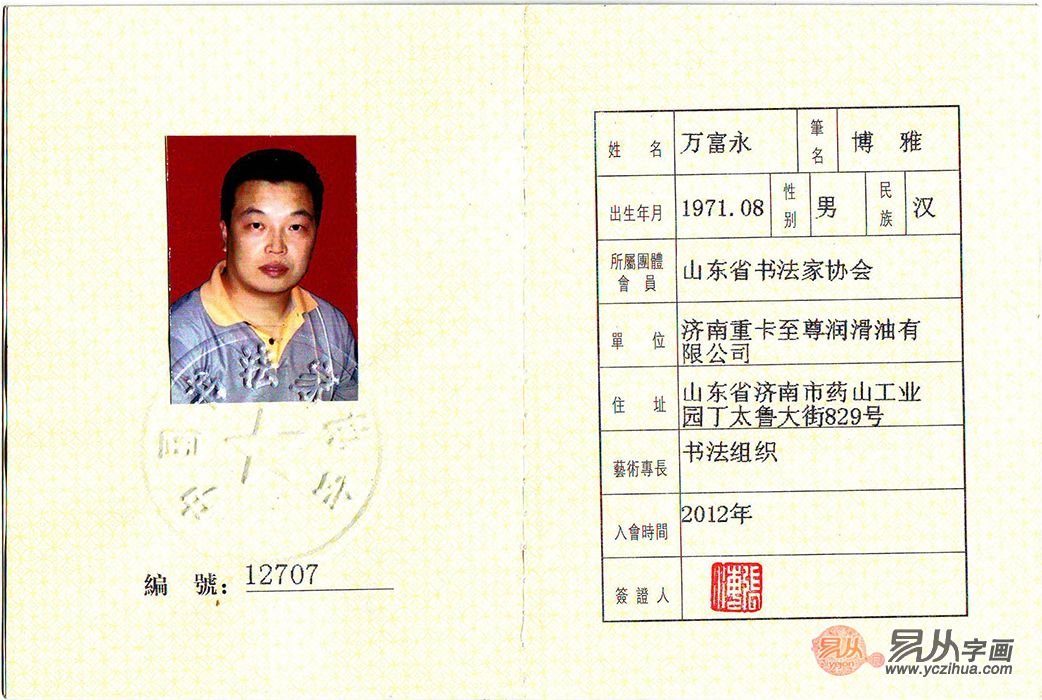 书法家
中国
协会
編 號: 12707
姓 名 万富永 筆名 博雅
出生年月 1971.08 性别 男 民族 汉
所屬團體會員 山东省书法家协会
單 位 济南重卡至尊润滑油有
限公司
住 址 山东省济南市药山工业
园丁太鲁大街829号
藝術專長 书法组织
入會時間 2012年
簽證人
易从
yejon
易从字画
www.yczihua.com